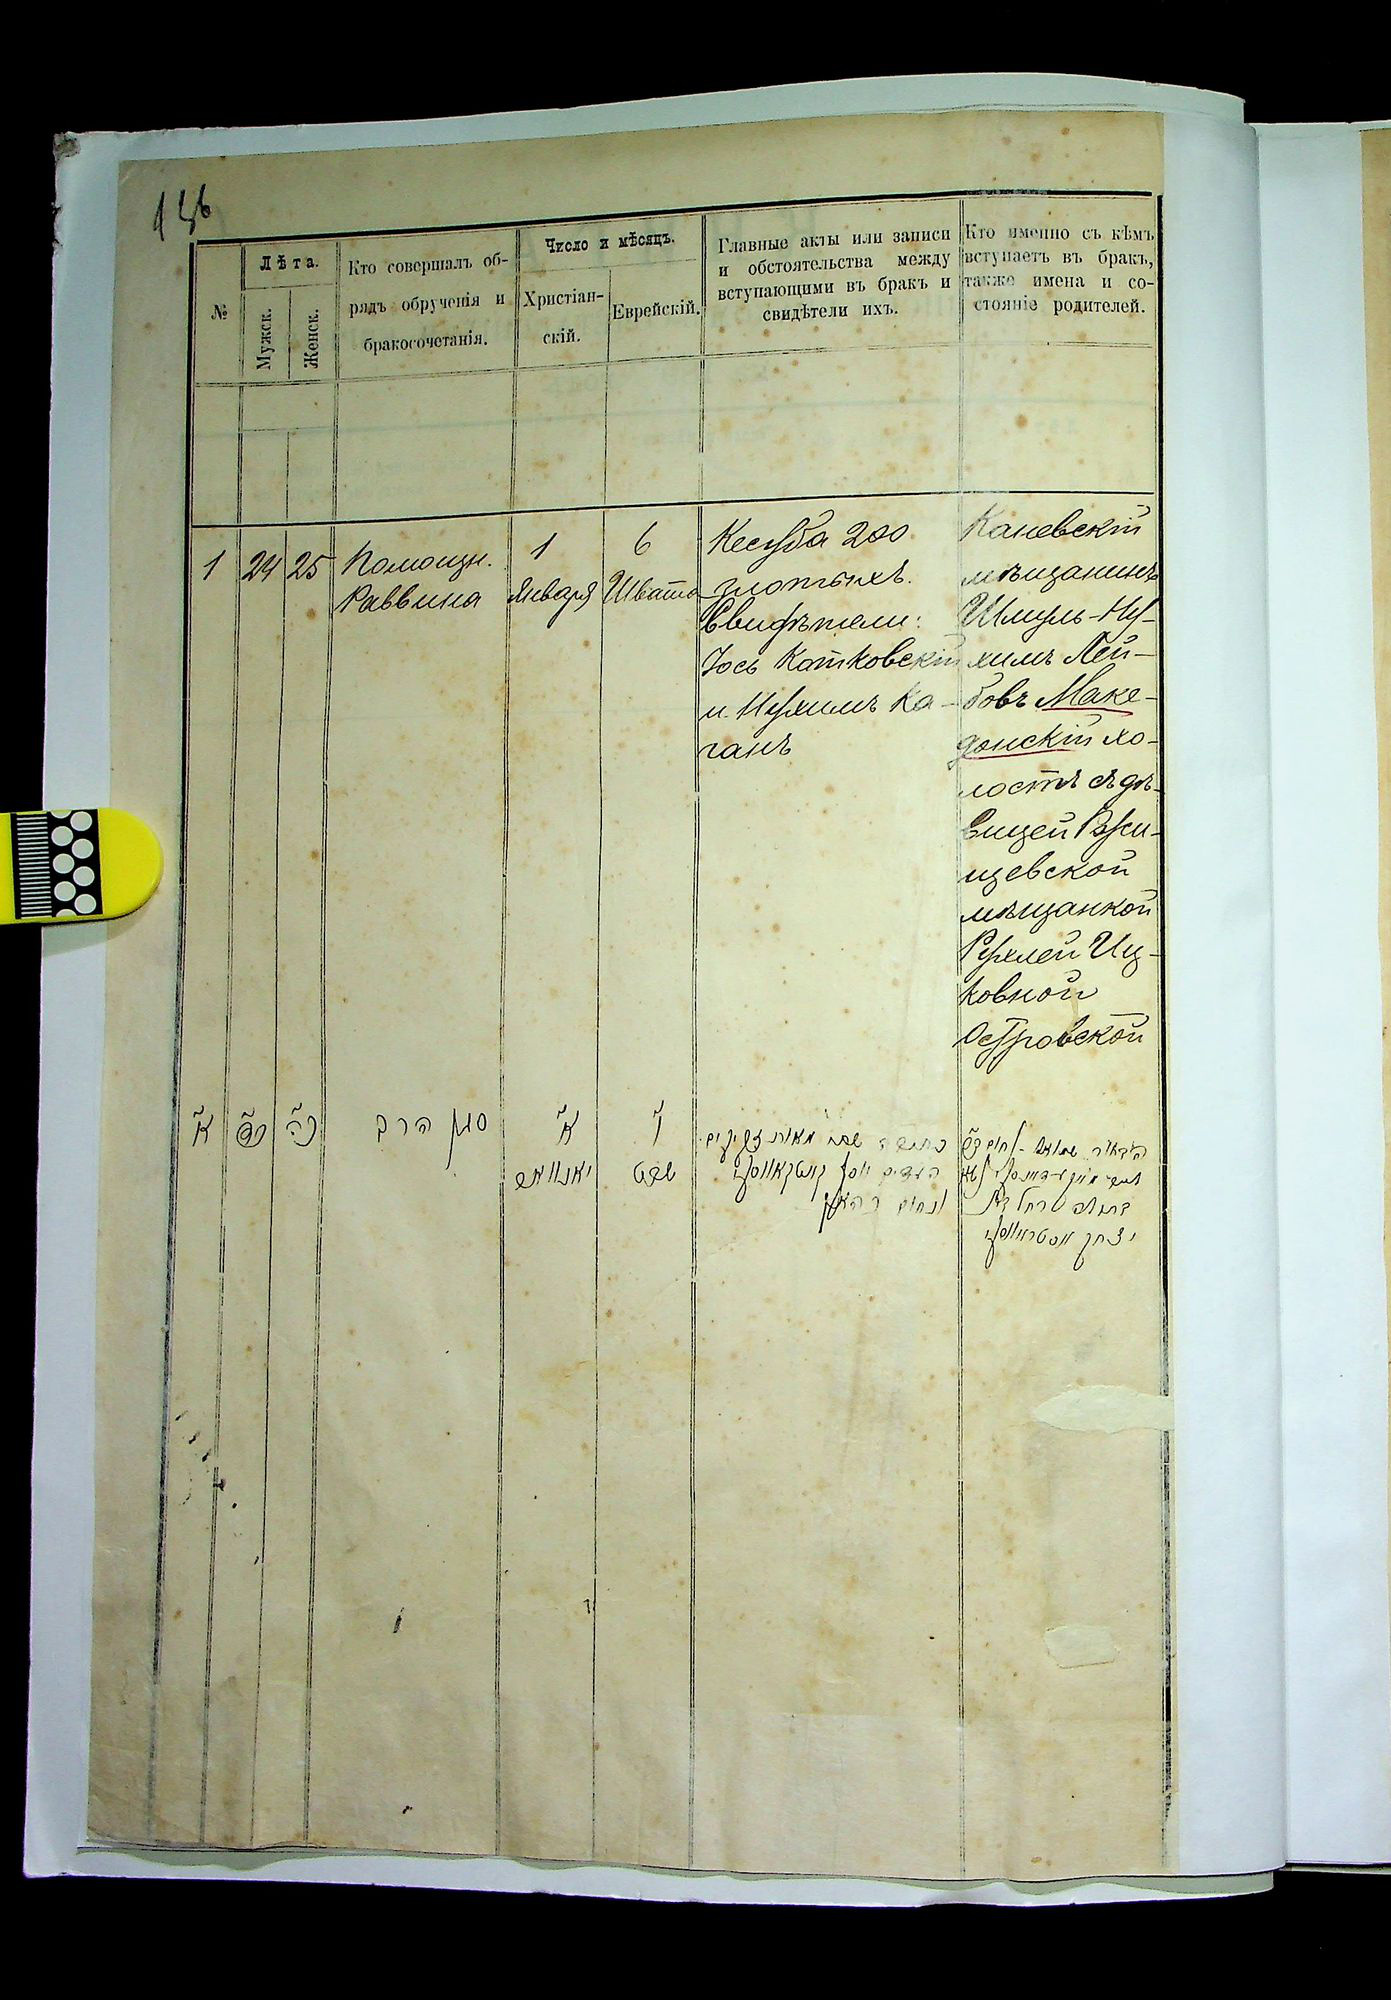 146
№
Лѣта.
Мужск.
Женск.
Кто совершалъ об-
рядъ обрученія и
бракосочетанія.
Число и мѣсяцъ.
Христіан-
скій.
Еврейскій.
Главные акты или записи
и обстоятельства между
вступающими въ бракъ и
свидѣтели ихъ.
Кто именно съ кѣмъ
вступаетъ въ бракъ,
также имена и со-
стояніе родителей.
1
24
25
Помощн.
Раввина
1
Января
6
Швата
Кесуба 200
злотыхъ.
Свидѣтели:
Іось Котковскій
и Нухимъ Ка-
ганъ
Каневскій
мѣщанинъ
Шмуль-Ну-
химъ Лей-
бовъ Маке-
донскій хо-
лостъ съ дѣ-
вицей Ржи-
щевской
мѣщанкой
Рухлей Иц-
ковной
Островской
א
כה
סגן הרב
א
יאנוואר
ו
שבט
מאות
העדים יוסף
ונחום כהאן
יצחק אסטראווסקי